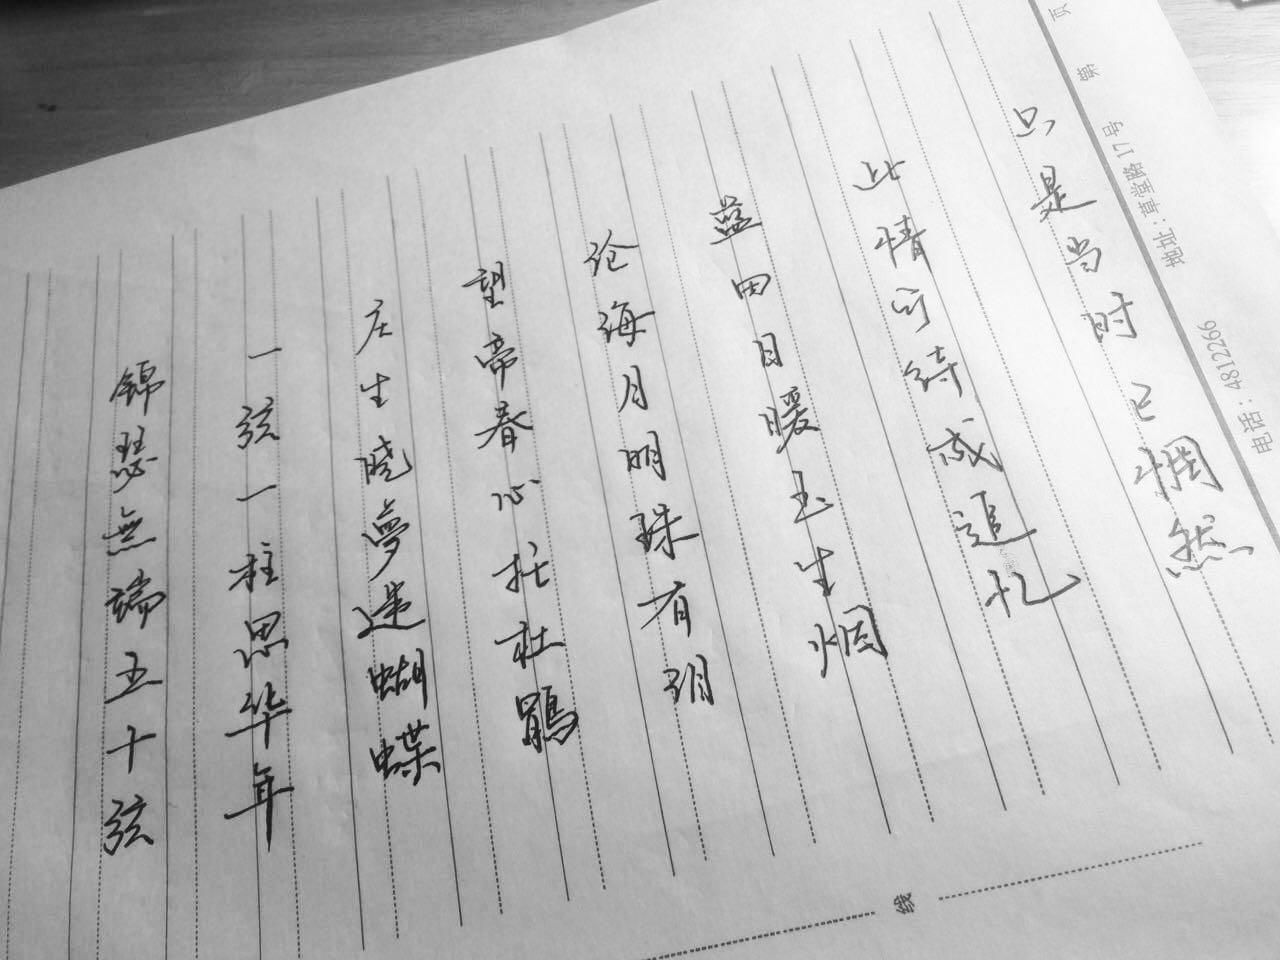 锦瑟無端五十弦
一弦一柱思华年
庄生晓夢迷蝴蝶
望帝春心托杜鵑
沧海月明珠有泪
蓝田日暖玉生烟
此情可待成追忆
只是当时已惘然
页 第
地址：草堂路17号 电话：4812266
线